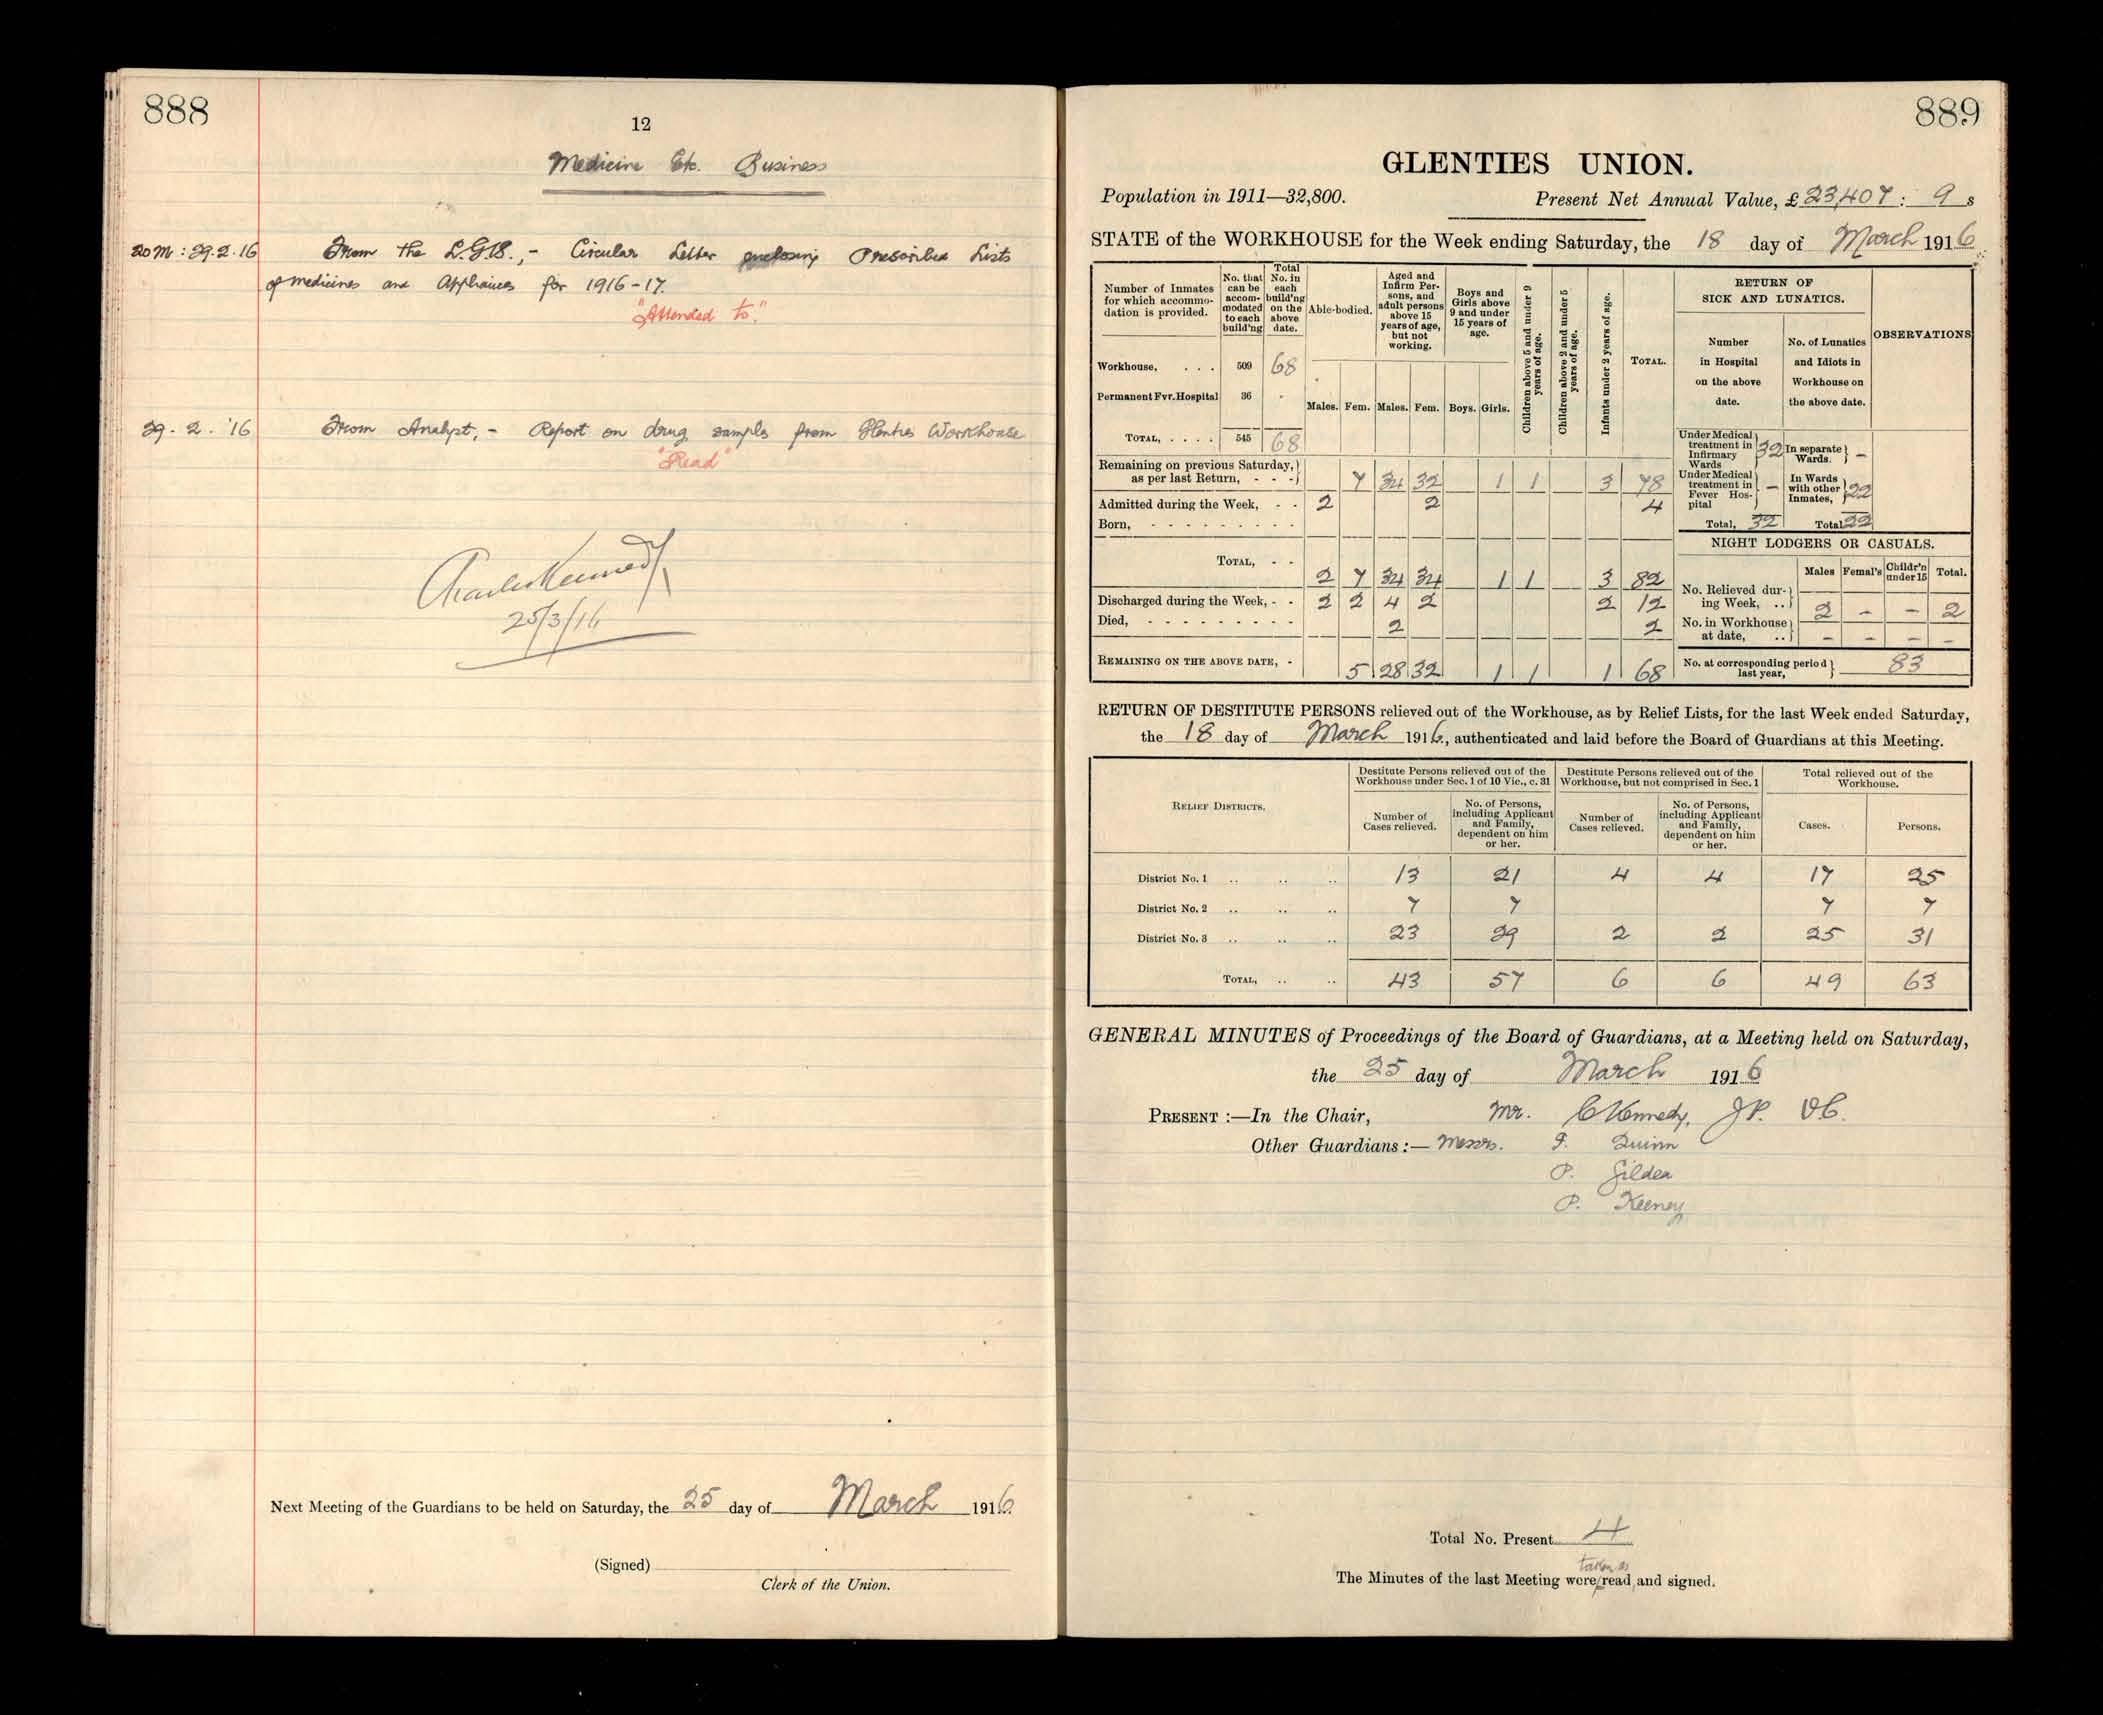 888
12
Medicine Etc. Business
20 M : 29.2.16 From the L.G.B., - Circular Letter enclosing Prescribed Lists
of medicines and Appliances for 1916-17.
"Attended to."
29. 2. '16 From Analyst, - Report on drug samples from Glenties Workhouse
"Read"
Charles Kennedy
25/3/16
Next Meeting of the Guardians to be held on Saturday, the 25 day of March 1916.
(Signed)
Clerk of the Union.
889
GLENTIES UNION.
Population in 1911—32,800. Present Net Annual Value, £23,407 : 9 s
STATE of the WORKHOUSE for the Week ending Saturday, the 18 day of March 1916
Number of Inmates for which accommodation is provided.
No. that can be accommodated to each build'ng
Total No. in each build'ng on the above date.
Able-bodied.
Aged and Infirm Persons, and adult persons above 15 years of age, but not working.
Boys and Girls above 9 and under 15 years of age.
Children above 5 and under 9 years of age.
Children above 2 and under 5 years of age.
Infants under 2 years of age.
TOTAL.
Males. Fem. Males. Fem. Boys. Girls.
Workhouse, . . . 509 68
Permanent Fvr. Hospital 36 -
TOTAL, . . . . 545 68
Remaining on previous Saturday, as per last Return, - - - 7 34 32 1 1 3 78
Admitted during the Week, - - 2 2 4
Born, - - - - - - - - -
TOTAL, - - 2 7 34 34 1 1 3 82
Discharged during the Week, - - 2 2 4 2 2 12
Died, - - - - - - - - - 2 2
REMAINING ON THE ABOVE DATE, - 5 28 32 1 1 1 68
RETURN OF
SICK AND LUNATICS.
OBSERVATIONS
Number in Hospital on the above date.
No. of Lunatics and Idiots in Workhouse on the above date.
Under Medical treatment in Infirmary Wards 32 In separate Wards. —
Under Medical treatment in Fever Hospital — In Wards with other Inmates, 22
Total, 32 Total 22
NIGHT LODGERS OR CASUALS.
Males Femal's Childr'n under 15 Total.
No. Relieved during Week, .. 2 - - 2
No. in Workhouse at date, .. - - - -
No. at corresponding period last year, 83
RETURN OF DESTITUTE PERSONS relieved out of the Workhouse, as by Relief Lists, for the last Week ended Saturday,
the 18 day of March 1916., authenticated and laid before the Board of Guardians at this Meeting.
RELIEF DISTRICTS.
Destitute Persons relieved out of the Workhouse under Sec. 1 of 10 Vic., c. 31
Destitute Persons relieved out of the Workhouse, but not comprised in Sec. 1
Total relieved out of the Workhouse.
Number of Cases relieved.
No. of Persons, including Applicant and Family, dependent on him or her.
Number of Cases relieved.
No. of Persons, including Applicant and Family, dependent on him or her.
Cases.
Persons.
District No. 1 .. .. .. 13 21 4 4 17 25
District No. 2 .. .. .. 7 7 7 7
District No. 3 .. .. .. 23 29 2 2 25 31
TOTAL, .. .. 43 57 6 6 49 63
GENERAL MINUTES of Proceedings of the Board of Guardians, at a Meeting held on Saturday,
the 25 day of March 1916
PRESENT :—In the Chair, Mr. C Kennedy, J.P. V.C.
Other Guardians :— Messrs. F. Quinn
P. Gildea
P. Keeney
Total No. Present 4
taken as
The Minutes of the last Meeting were/read, and signed.